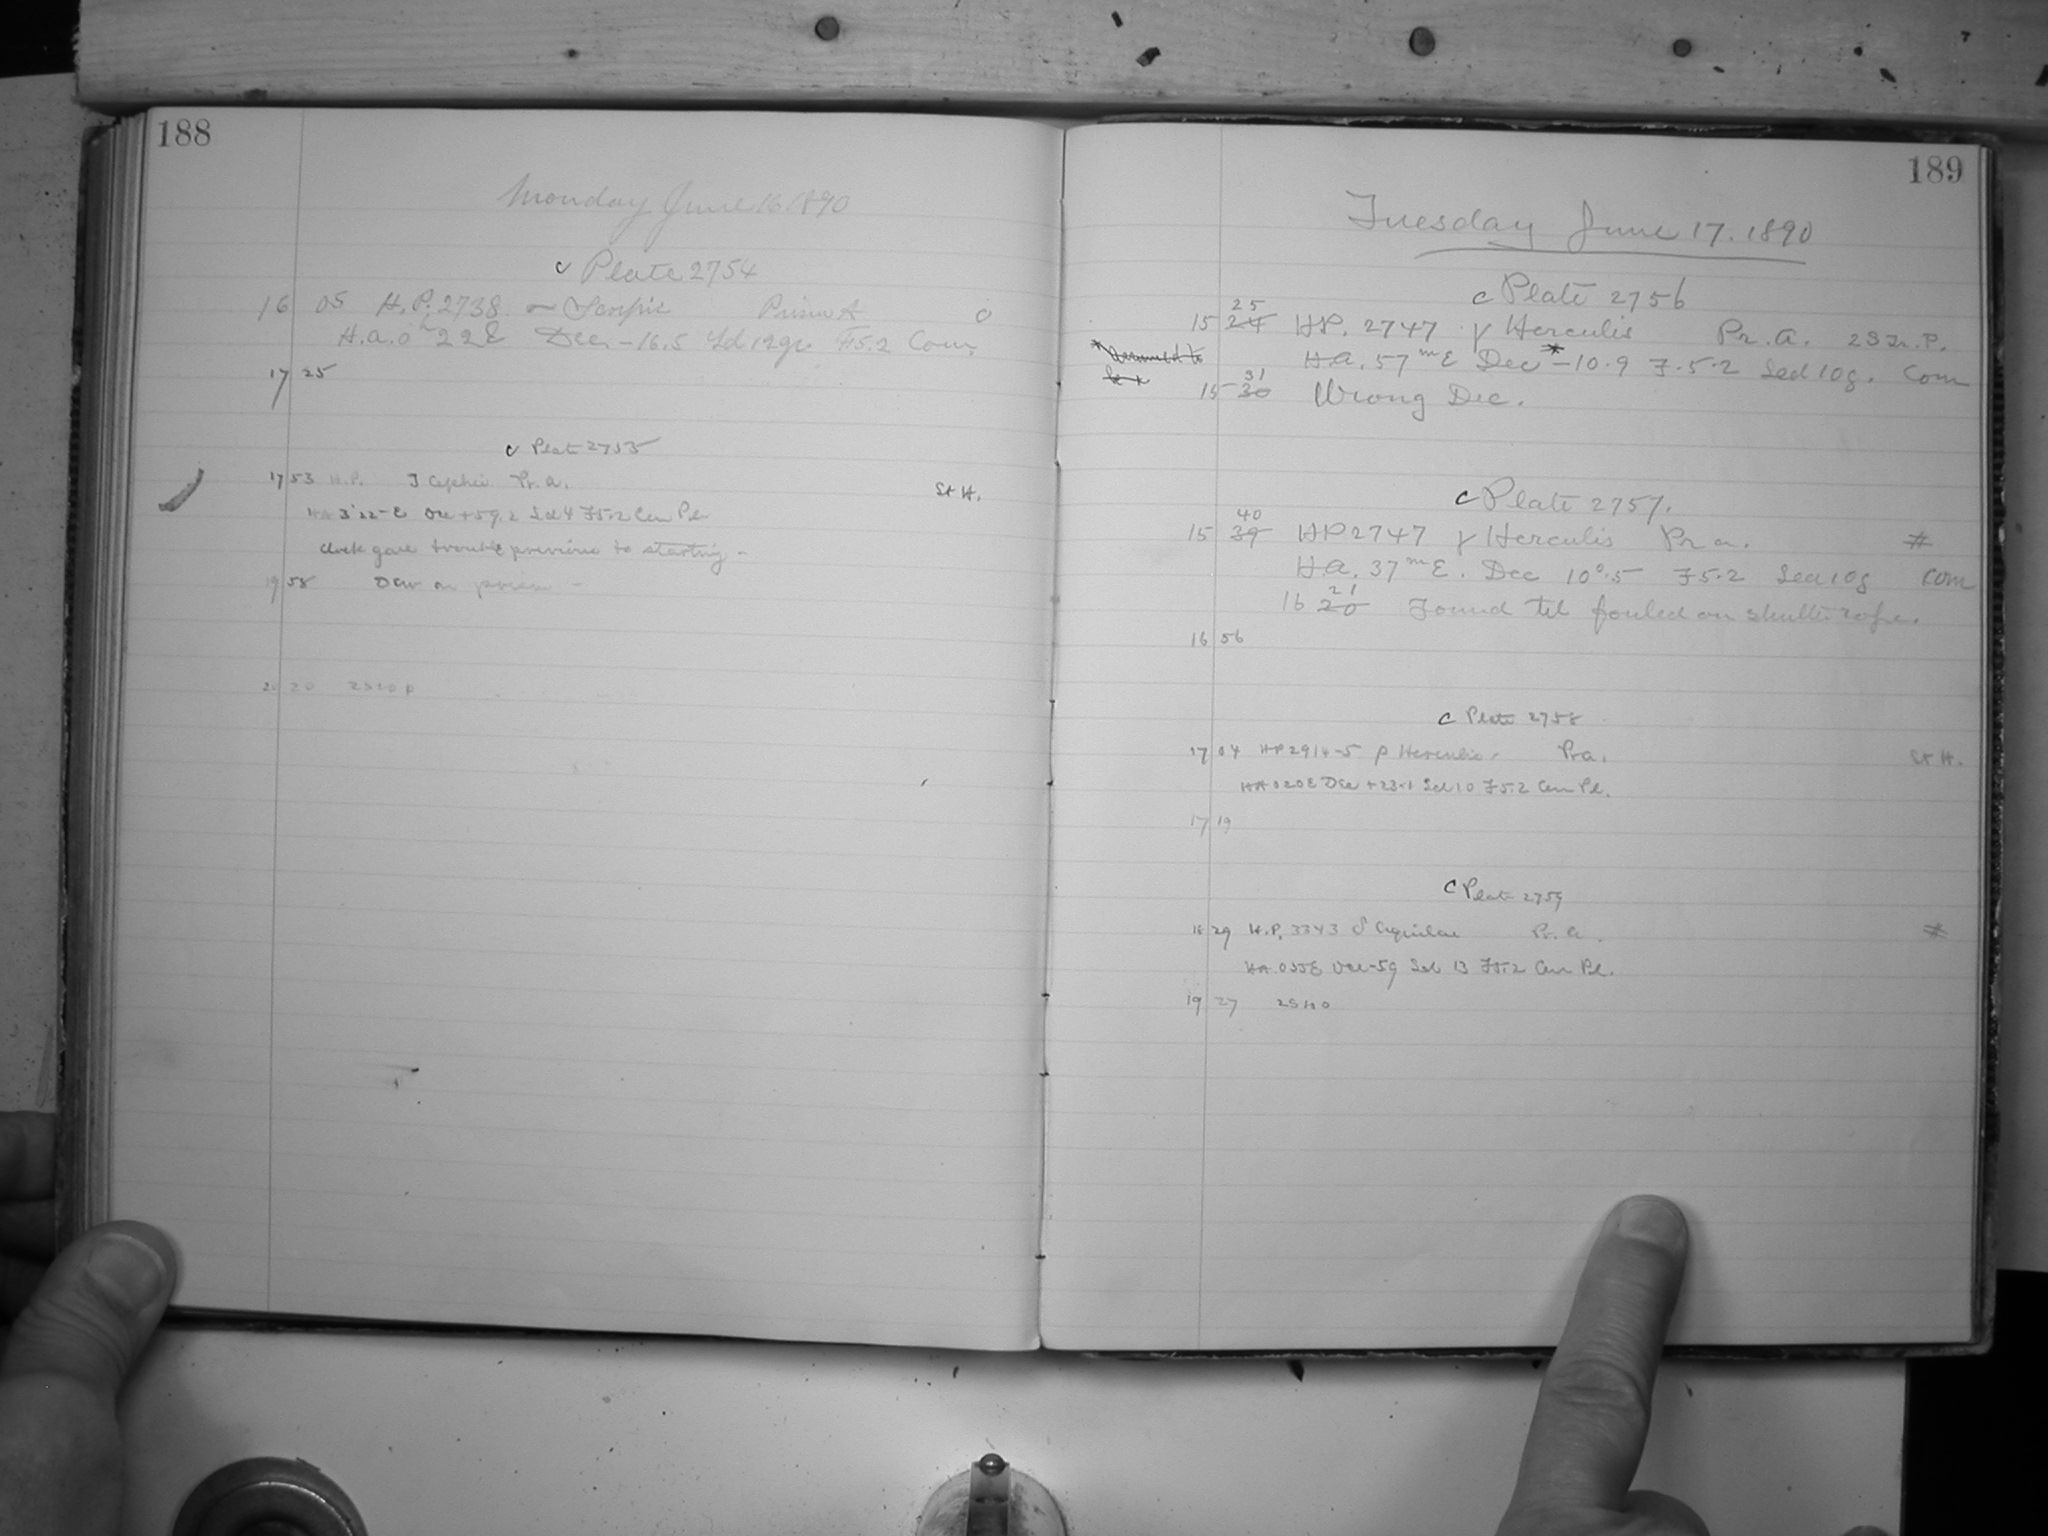 188
Monday June 16 1890
c Plate 2754
16 05 H.P. 2738 Scorpii Prism A 0
H.a. 0h 22 E Dec. -16.5 Sd 12gr F5.2 Com.
17 25
c Plate 2755
17 53 H.P. Cephei Pr. a. St H.
HA 3 22 E Dec +59.2 Sd 4 F5.2 Cem Pl
Clock gave trouble previous to starting -
19 58 Dew on prism -
20 20
189
Tuesday June 17. 1890
c Plate 2756
25
15 24 HP. 2747 γ Herculis Pr. A. 2S Tr. P.
H.A. 57m E Dec * -10.9 F.5.2 Sed 10g. Com
31
15 30 Wrong Dec.
c Plate 2757.
40
15 39 HP 2747 γ Herculis Pr a. #
H.A. 37m E. Dec 10°.5 F5.2 Sed 10g Com
21
16 20 Found tel fouled on shutter rope.
16 56
c Plate 2758
17 04 HP 2914-5 ρ Herculis Pr a. St H.
HA 0 20 E Dec +23.1 Sd 10 F5.2 Cem Pl.
17 19
c Plate 2759
18 29 H.P. 3343 δ Aquilae Pr. a. #
HA. 0 55 E Dec -59 Sd 13 F5.2 Cem Pl.
19 27